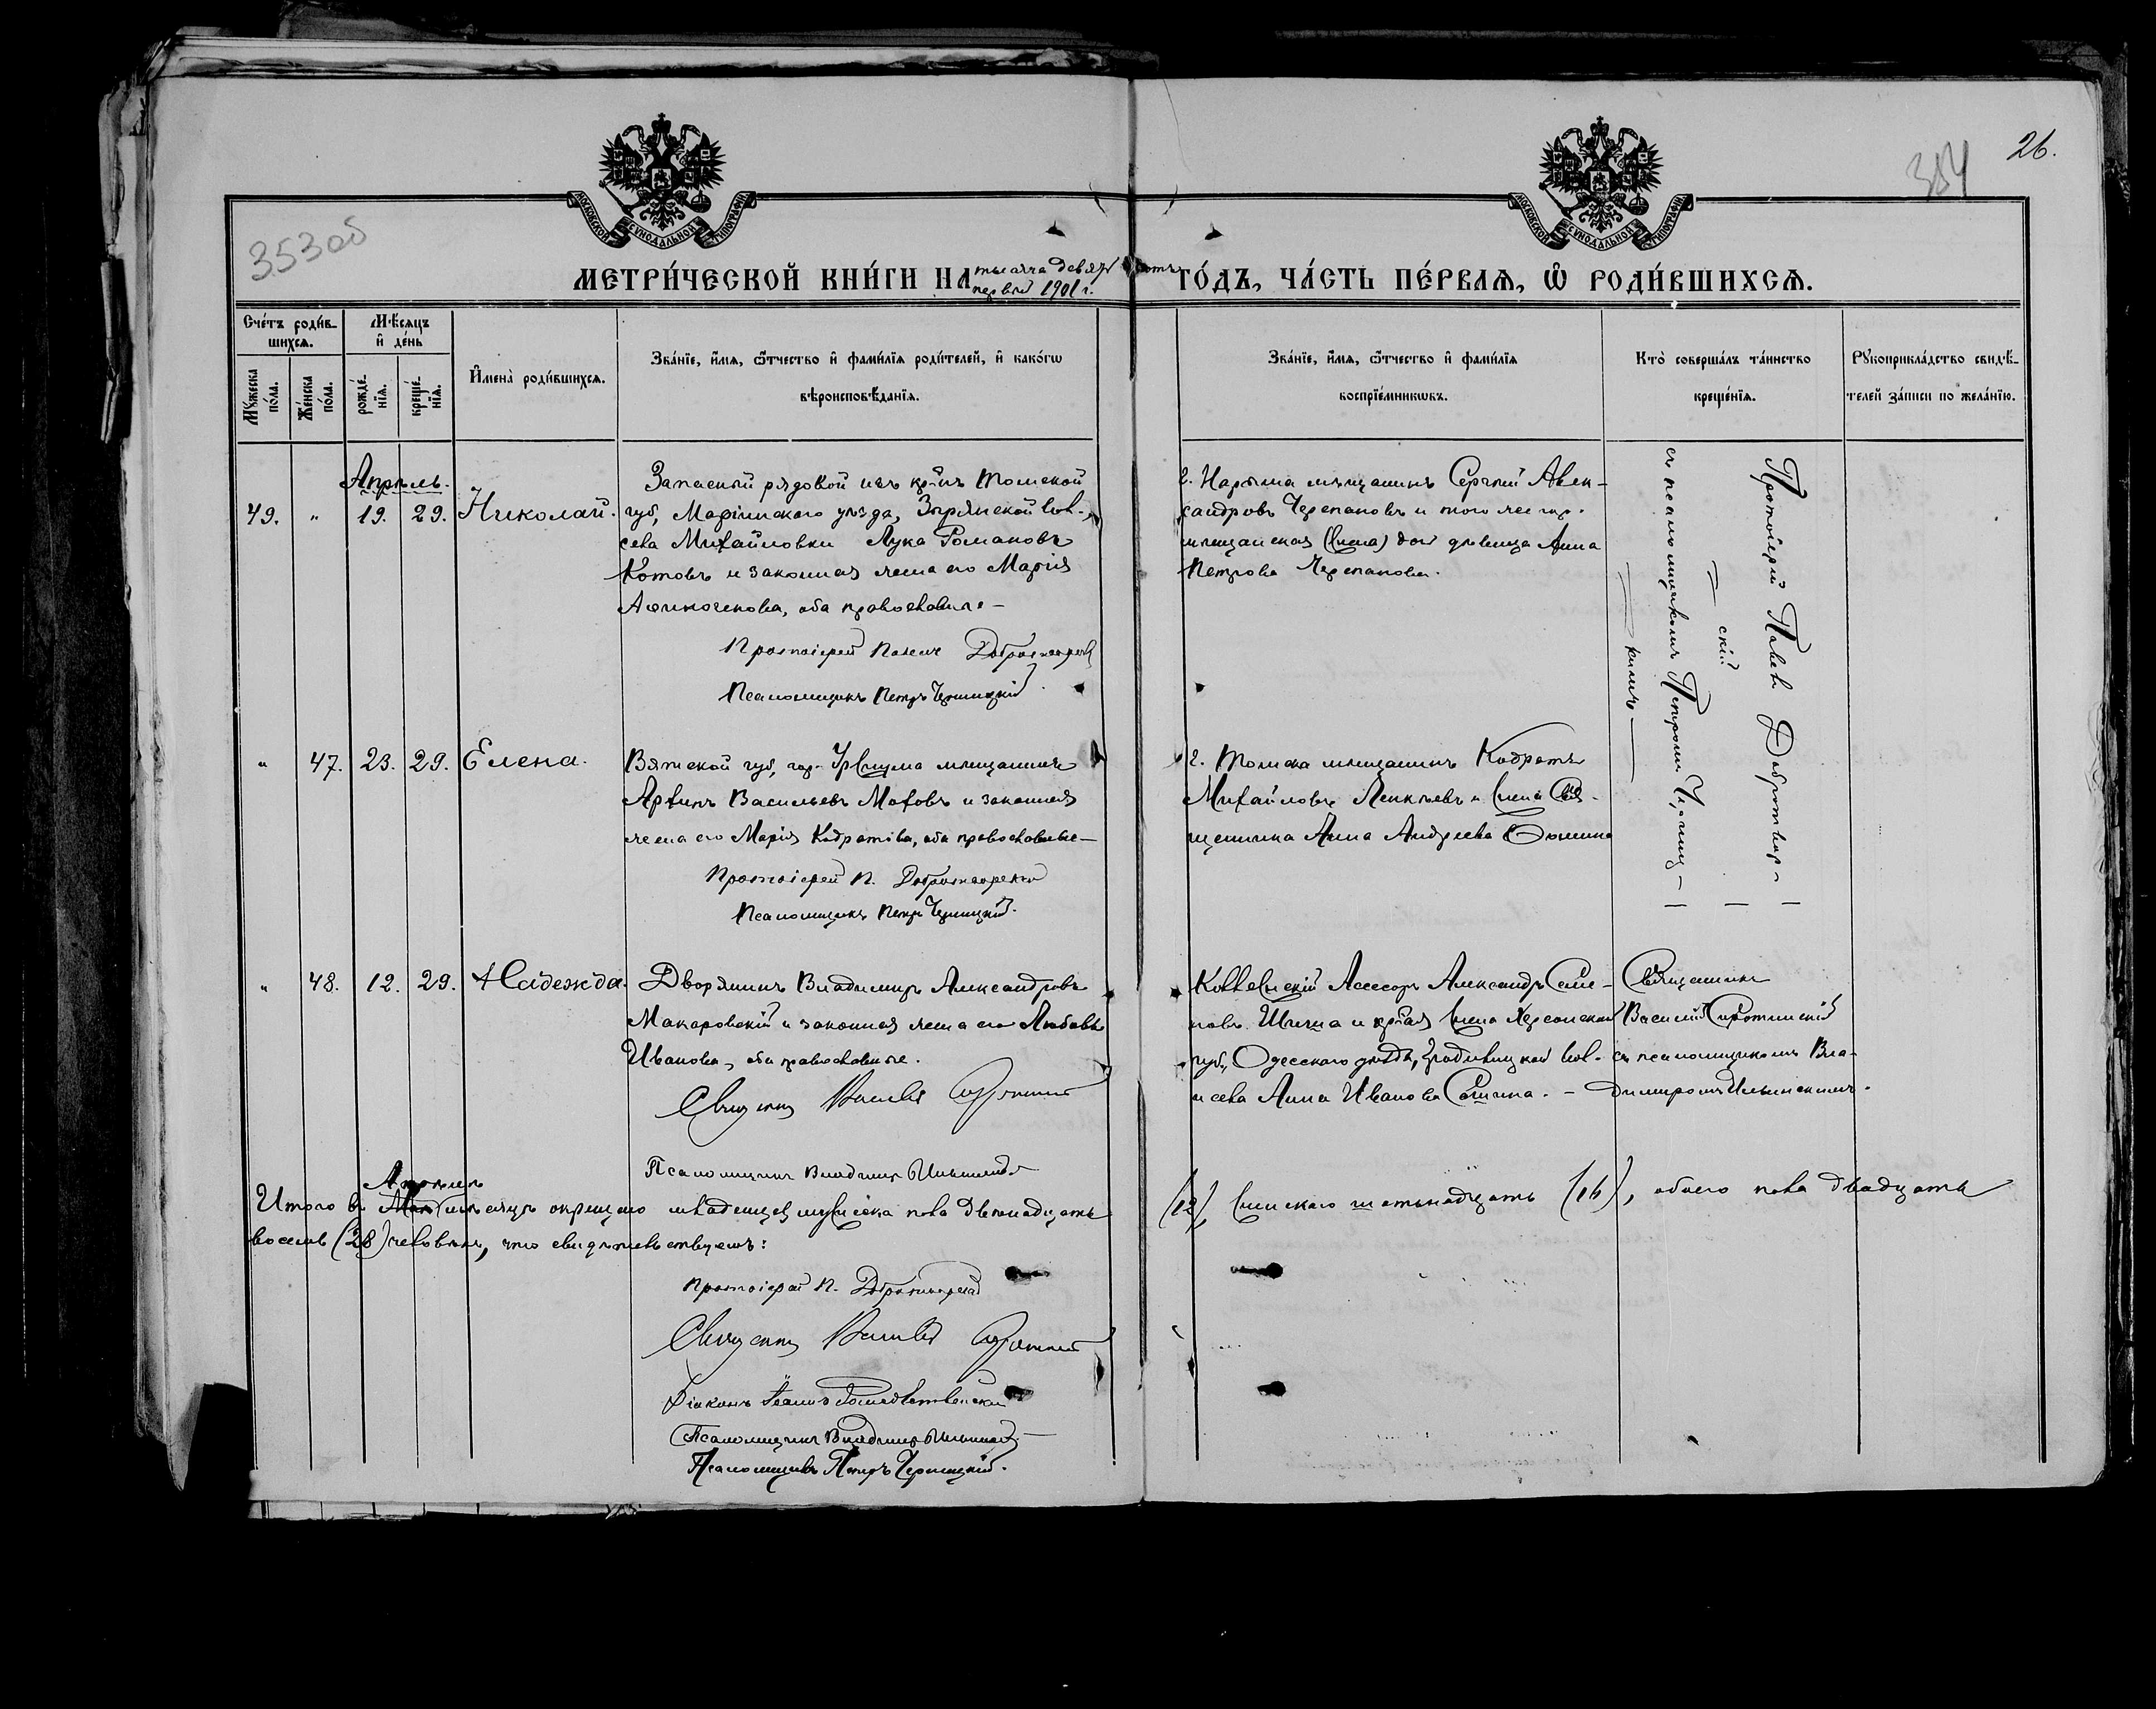 26.
354
353 об
МОСКОВСКОЙ СУНОДАЛЬНОЙ ТИПОГРАФІИ
МОСКОВСКОЙ СУНОДАЛЬНОЙ ТИПОГРАФІИ
МЕТРИ́ЧЕСКОЙ КНИ́ГИ НА тысяча девять сотъ первый 1901 г. ГО́ДЪ, ЧА́СТЬ ПЕ́РВАѦ, Ѽ РОДИ́ВШИХСѦ.
Сче́тъ роди́вшихсѧ.
Мꙋ́жеска по́ла.
Же́нска по́ла.
Мѣ́сѧцъ и҆ де́нь
рожде́нїѧ.
креще́нїѧ.
И҆мена̀ роди́вшихсѧ.
Зва́нїе, и҆́мѧ, ѻ҆́тчество и҆ фами́лїѧ роди́телей, и҆ како́гѡ
вѣроисповѣ́данїѧ.
Зва́нїе, и҆́мѧ, ѻ҆́тчество и҆ фами́лїѧ
воспрїе́мникѡвъ.
Кто̀ соверша́лъ та́инство
креще́нїѧ.
Рꙋкоприкла́дство свидѣ́-
телей за́писи по жела́нїю.
Апрѣль.
49. " 19. 29. Николай.
Запасный рядовой изъ кр-нъ Томской
губ, Маріинскаго уѣзда, Зырянской вол.,
села Михайловки Лука Романовъ
Котовъ и законная жена его Марія
оба православные
Протоіерей Павелъ Добротворскій
Псаломщикъ Петръ Черницкій.
г. Нарыма мѣщанинъ Сергѣй Алек-
сандровъ Черепановъ и того же гор.
мѣщанская дочь дѣвица Анна
Петрова Черепанова.
Протоіерей Павелъ Добротвор-
скій
съ псаломщикомъ Петромъ Черниц-
кимъ
" 47. 23. 29. Елена.
Вятской губ, гор. Уржума мѣщанинъ
Васильевъ и законная
жена его Марія Кодратова, оба православные
Протоіерей П. Добротворскій
Псаломщикъ Петръ Черницкій.
г. Томска мѣщанинъ Кодратъ
Михайловъ и жена Свя-
щенника Анна Андреева
" 48. 12. 29. Надежда.
Дворянинъ Владимиръ Александровъ
Макаровскій и законная жена его Любовь
Иванова, оба православные.
Священникъ Василій Сиротинскій
Псаломщикъ Владимиръ Ильинскій
Коллежскій Ассесоръ Александръ Семе-
новъ и кр-ая жена Херсонской
губ, Одесскаго уѣзда, вол.
и села Анна Иванова
Священникъ
Василій Сиротинскій
съ псаломщикомъ Вла-
димиромъ Ильинскимъ.
Апрѣлѣ
Итого въ Маѣ мѣсяцѣ окрещено младенцевъ мужеска пола двѣнадцать (12), женскаго шестьнадцать (16), обоего пола двадцать
восемь (28) человѣкъ, что свидѣтельствуемъ:
Протоіерей П. Добротворскій
Священникъ Василій Сиротинскій
Діаконъ Іоаннъ Рождественскій
Псаломщикъ Владимиръ Ильинскій
Псаломщикъ Петръ Черницкій.